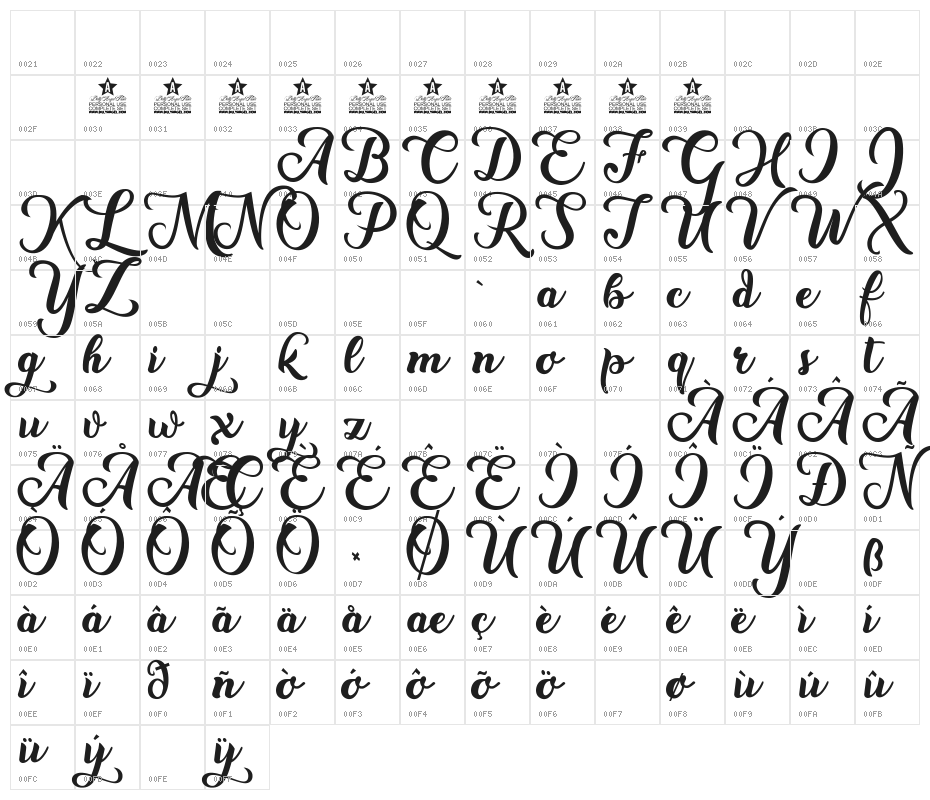 0021 0022 0023 0024 0025 0026 0027 0028 0029 002A 002B 002C 002D 002E
A A A A A A A A A A
PERSONAL USE PERSONAL USE PERSONAL USE PERSONAL USE PERSONAL USE PERSONAL USE PERSONAL USE PERSONAL USE PERSONAL USE PERSONAL USE
COMPLETE SET COMPLETE SET COMPLETE SET COMPLETE SET COMPLETE SET COMPLETE SET COMPLETE SET COMPLETE SET COMPLETE SET COMPLETE SET
002F 0030 0031 0032 0033 0034 0035 0036 0037 0038 0039 003A 003B 003C
A B C D E F G H I J
003D 003E 003F 0040 0041 0042 0043 0044 0045 0046 0047 0048 0049 004A
K L M N O P Q R S T U V W X
004B 004C 004D 004E 004F 0050 0051 0052 0053 0054 0055 0056 0057 0058
Y Z ` a b c d e f
0059 005A 005B 005C 005D 005E 005F 0060 0061 0062 0063 0064 0065 0066
g h i j k l m n o p q r s t
0067 0068 0069 006A 006B 006C 006D 006E 006F 0070 0071 0072 0073 0074
u v w x y z À Á Â Ã
0075 0076 0077 0078 0079 007A 007B 007C 007D 007E 00C0 00C1 00C2 00C3
Ä Å Æ Ç È É Ê Ë Ì Í Î Ï Ð Ñ
00C4 00C5 00C6 00C7 00C8 00C9 00CA 00CB 00CC 00CD 00CE 00CF 00D0 00D1
Ò Ó Ô Õ Ö × Ø Ù Ú Û Ü Ý ß
00D2 00D3 00D4 00D5 00D6 00D7 00D8 00D9 00DA 00DB 00DC 00DD 00DE 00DF
à á â ã ä å æ ç è é ê ë ì í
00E0 00E1 00E2 00E3 00E4 00E5 00E6 00E7 00E8 00E9 00EA 00EB 00EC 00ED
î ï ð ñ ò ó ô õ ö ø ù ú û
00EE 00EF 00F0 00F1 00F2 00F3 00F4 00F5 00F6 00F7 00F8 00F9 00FA 00FB
ü ý ÿ
00FC 00FD 00FE 00FF